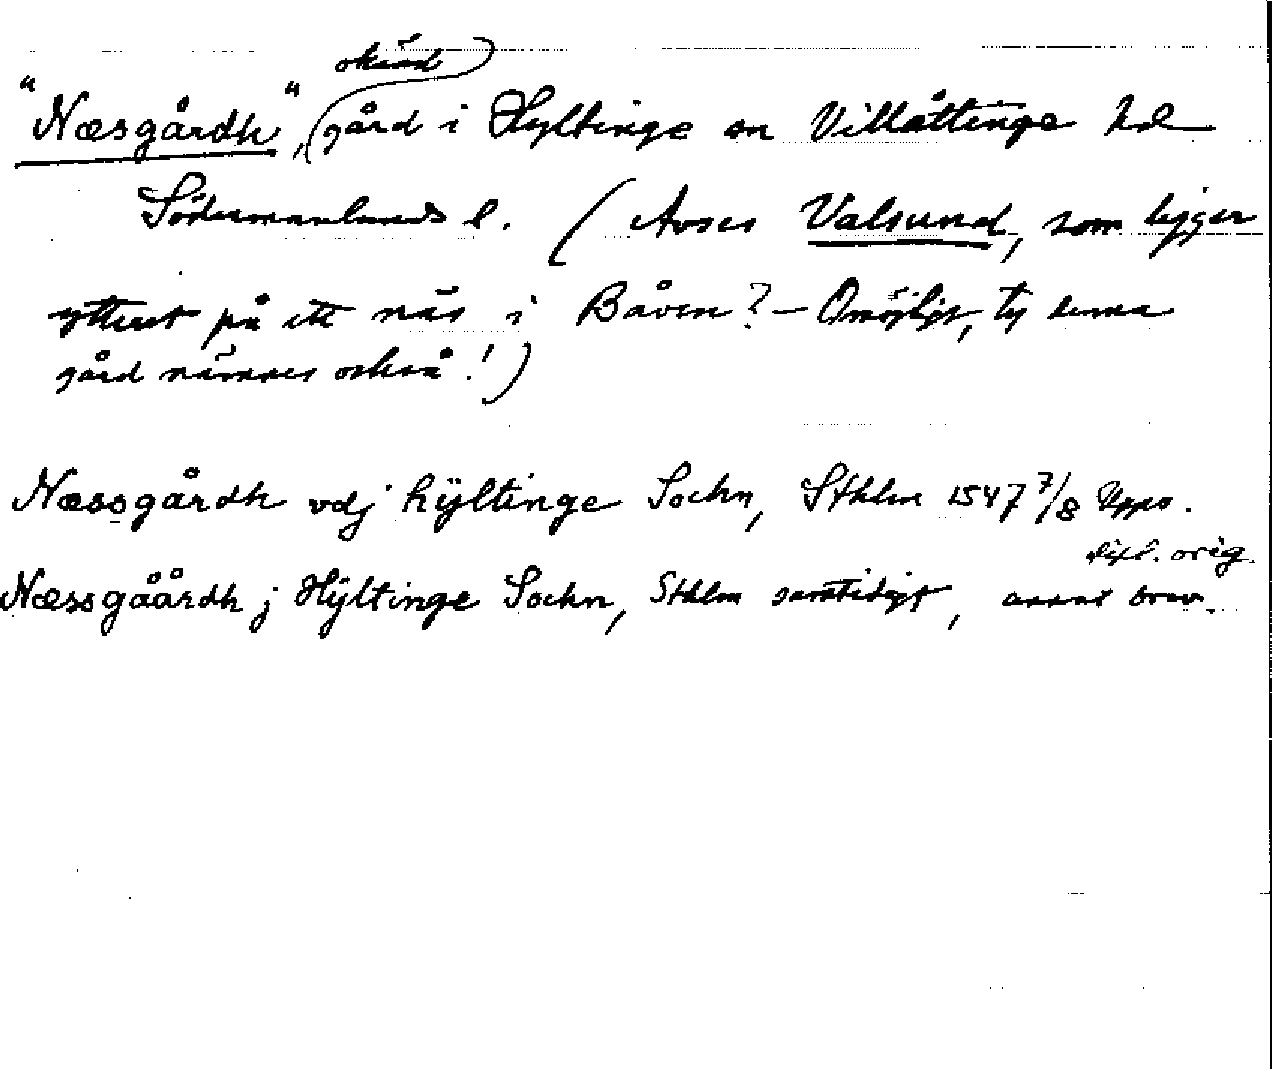 okänd
"Næsgårdh", gård i Hyltinge sn Villåttinge hd
Södermanlands l. (Avses Valsund, som ligger
ytterst på ett näs i Båven? - Omöjligt, ty denna
gård nämnes också!)
Næssgårdh vdj hÿltinge Sochn, Sthlm 1547 7/8 Upps.
dipl. orig.
Næssgåårdh j Hÿltinge Sochn, Sthlm samtidigt, annat brev.